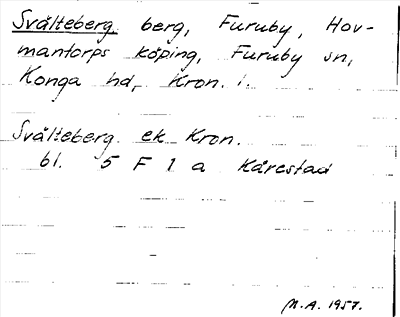 Svälteberg berg, Furuby, Hov-
mantorps köping, Furuby sn,
Konga hd, Kron. l.
Svälteberg ek Kron.
bl. 5 F 1 a Kårestad
M.A. 1957.